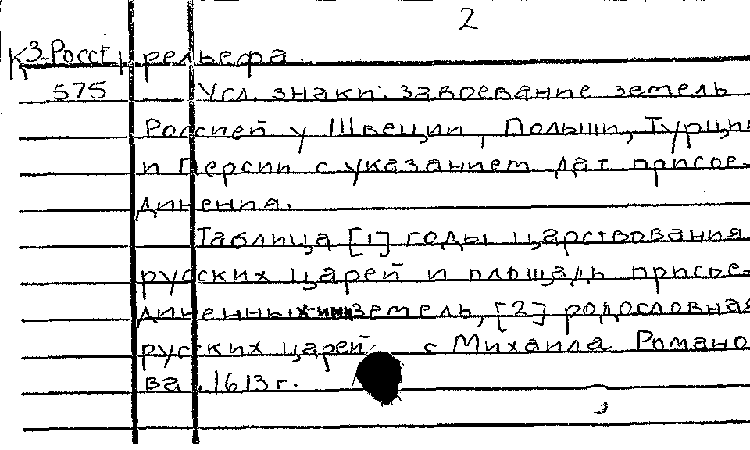 2
К 3-Росст рельефа.
575 Усл. знаки: завоевание земель
Россией у Швеции, Польши, Турции
и Персии с указанием дат присое-
динения.
Таблица [1] годы царствования
русских царей и площадь присое-
диненных земель, [2] родословная
русских царей с Михаила Романо
ва, 1613 г.